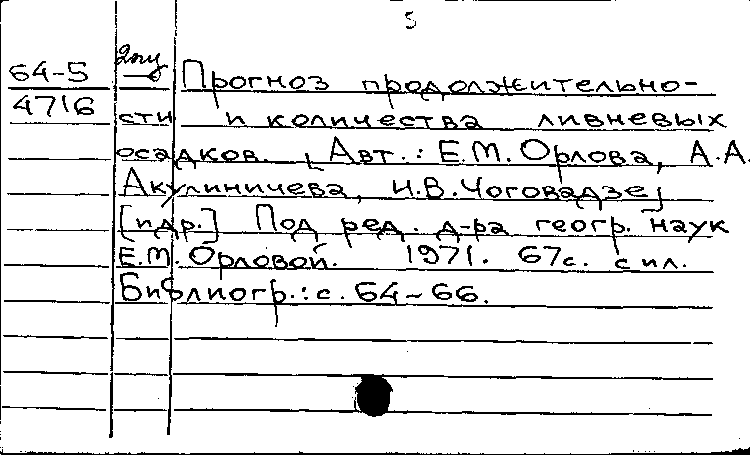 5
64-5
4716
Прогноз продолжительно-
сти и количества ливневых
осадков. [Авт.: Е.М. Орлова, А.А.
Акулиничева, И.В. Чоговадзе]
[и др.] Под ред. д-ра геогр. наук
Е.М. Орловой. 1971. 67с. с ил.
Библиогр.: с. 64-66.